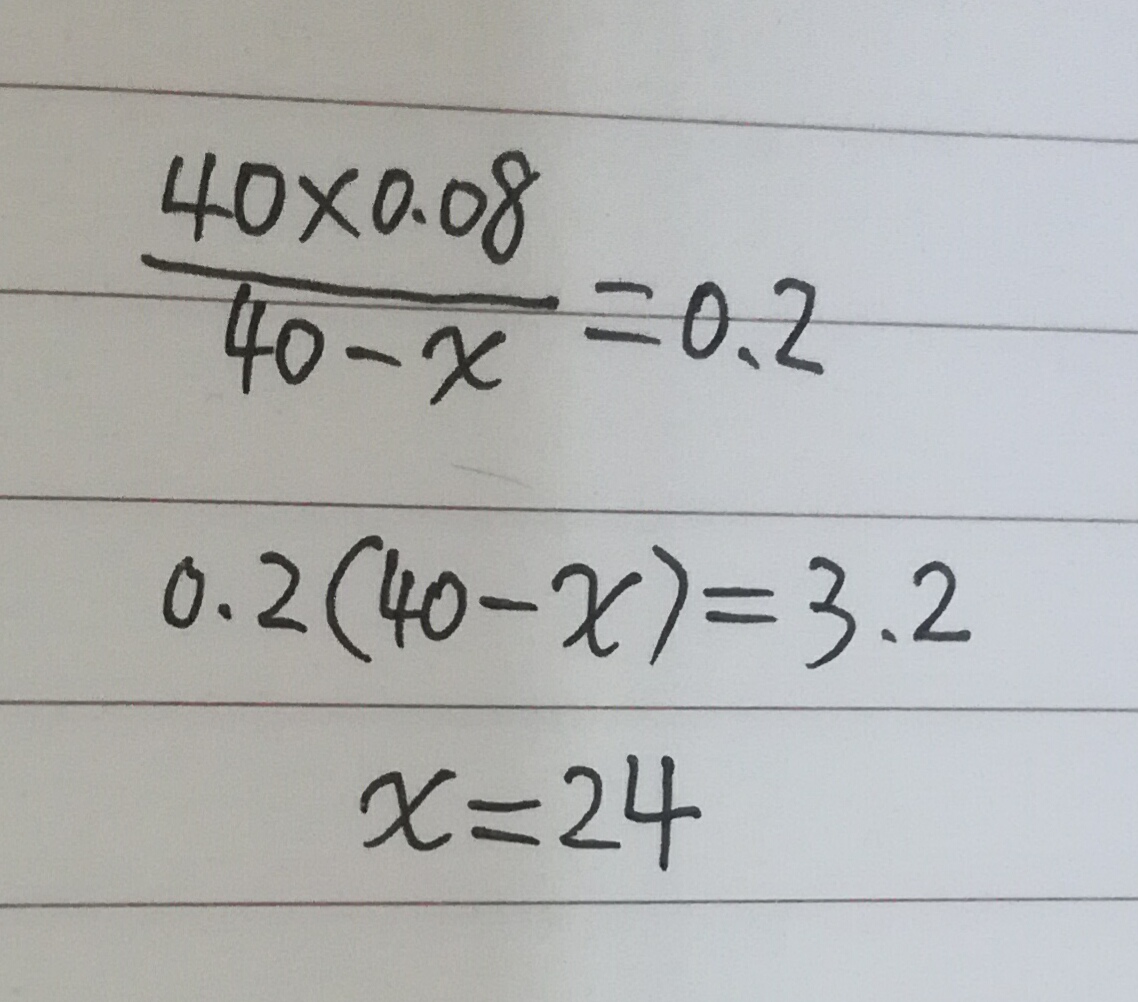 40×0.08
40-x =0.2
0.2(40-x)=3.2
x=24